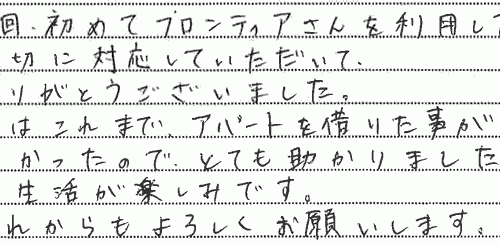 回、初めてフロンティアさんを利用して
切に対応していただいて、
りがとうございました。
はこれまで アパートを借りた事が
かったので、とても助かりました
生活が楽しみです。
れからもよろしくお願いします。